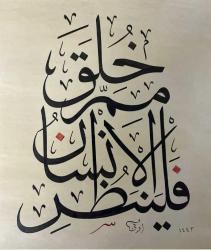 فلينظر
الانسان
ممّ
خلق
١٤٤٣